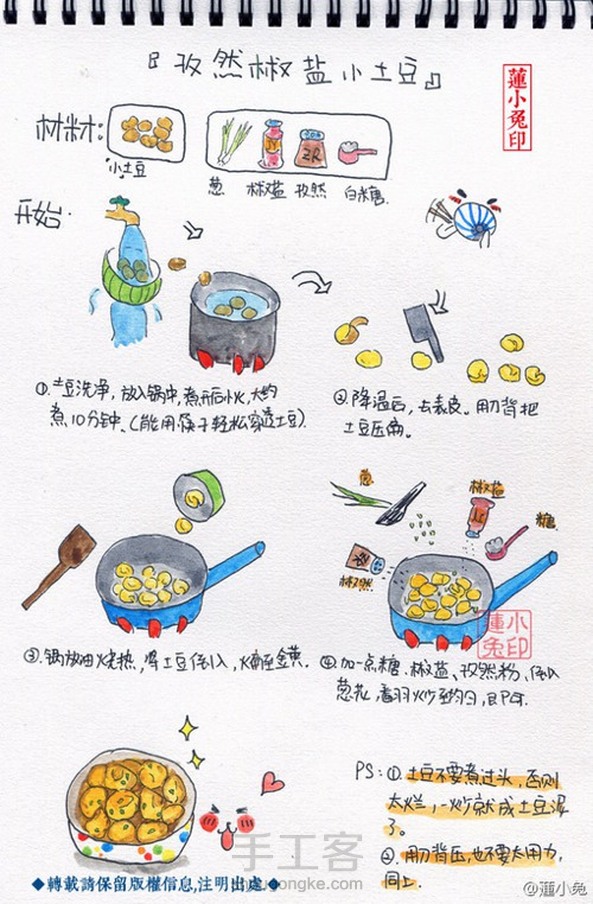 『孜然椒盐小土豆』
蓮小兔印
材料:
小土豆
葱 椒盐 孜然 白米糖.
ZR
开始.
①.土豆洗净,放入锅中,煮开后小火,大约
煮10分钟.(能用筷子轻松穿透土豆).
②.降温后,去表皮.用刀背把
土豆压扁。
葱
椒盐
糖
孜然
③.锅放油烧热,将土豆倒入,煸至金黄.
④.加一点糖.椒盐、孜然粉、倒入
葱花,翻炒至均匀,即可.
蓮小兔印
PS:①.土豆不要煮过头,否则
太烂,一炒就成土豆泥
了。
②.用刀背压,也不要太用力,
同上.
手工客
shougongke.com
◆轉載請保留版權信息,注明出處◆
@蓮小兔